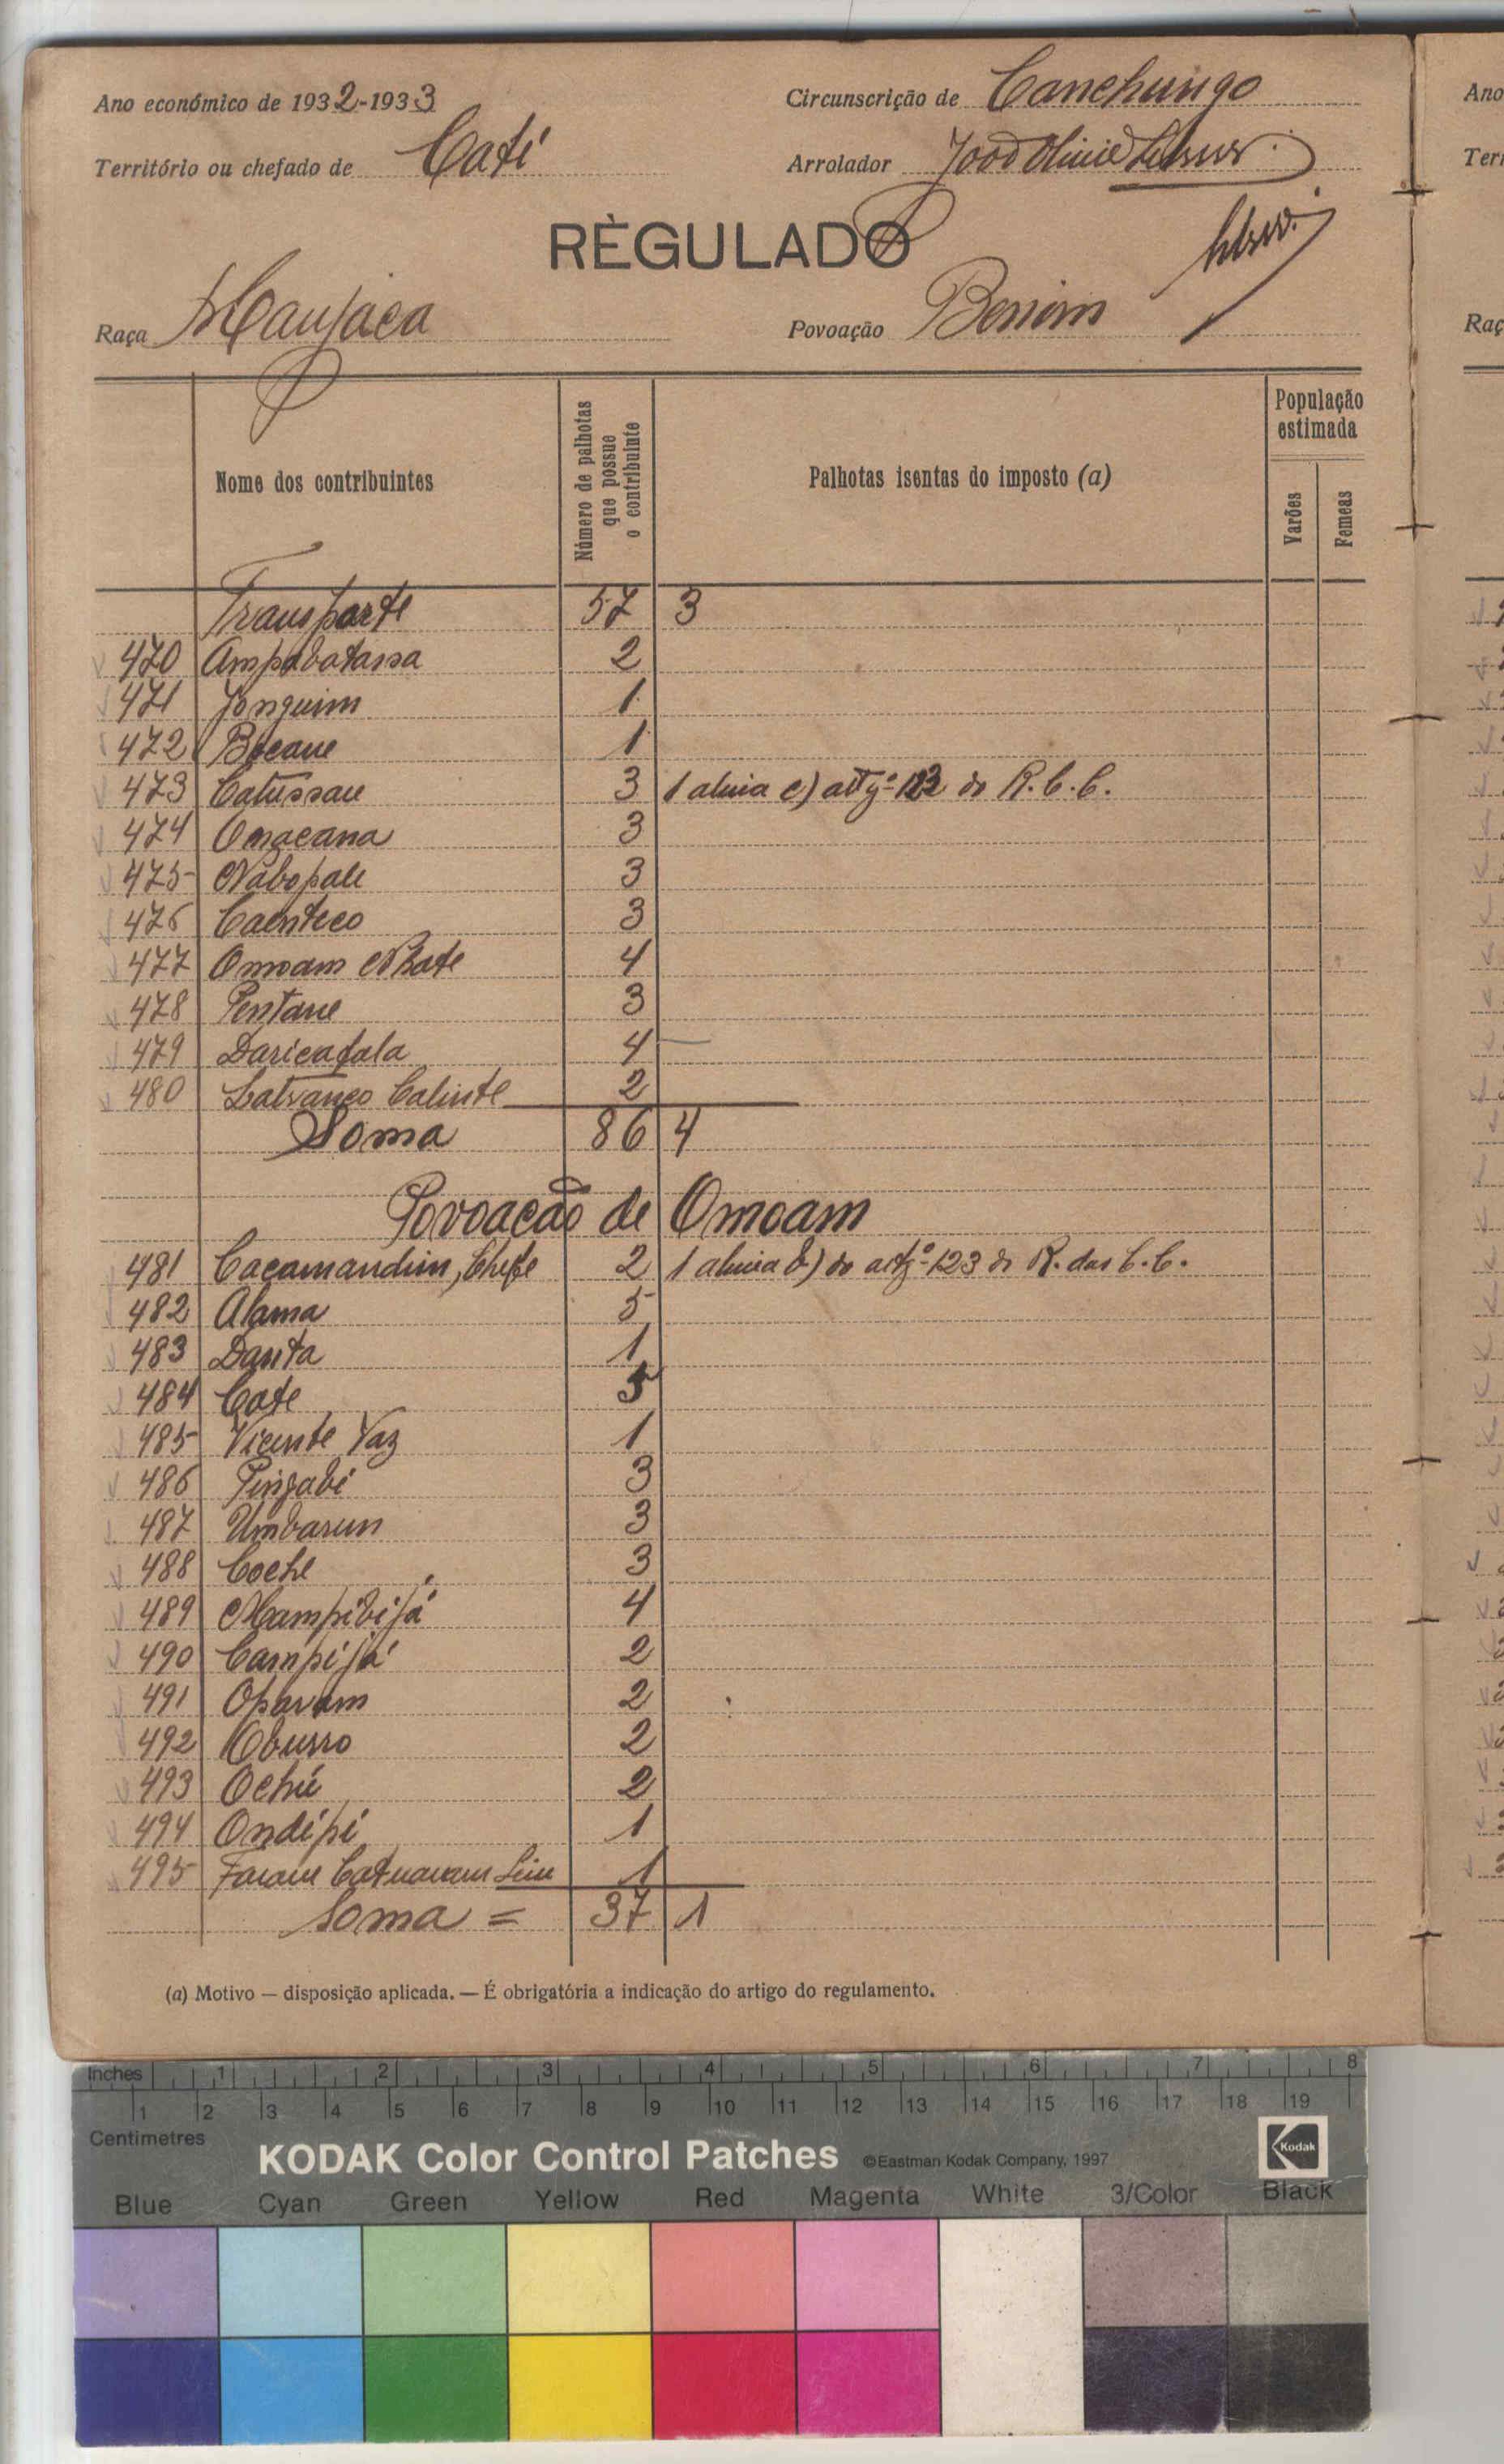 Ano económico de 1932-1933
Circunscrição de Canchungo
Território ou chefado de Catí
Arrolador João
REGULADO
Raça Manjaca
Povoação Bonim
Nome dos contribuintes
Número de palhotas que possue o contribuinte
Palhotas isentas do imposto (a)
População estimada
Varões
Femeas
Transporte 57 3
470 Ampabatassa 2
471 Jonquim 1
472 Bocane 1
473 Catussau 3 1 alinia c) artgº 123 do R.C.C.
474 Omacana 3
475 Nabopale 3
476 Caenteco 3
477 Omoam Nhate 4
478 Pentane 3
479 Daricafala 4
480 Calinte 2
Soma 86 4
Povoação de Omoam
481 Caçamandim, Chefe 2 1 alinia b) do artgº 123 do R. das C.C.
482 Alama 5
483 Danta 1
484 Cate 5
485 Vicente Vaz 1
486 Pingabi 3
487 Umbarum 3
488 Coche 3
489 Mampibijá 4
490 Campijá 2
491 Oparam 2
492 Oburro 2
493 Ochú 2
494 Ondipi 1
495 1
Soma = 37 1
(a) Motivo — disposição aplicada. — É obrigatória a indicação do artigo do regulamento.
Ano
Terr
Raç
Inches 1 2 3 4 5 6 7 8
1 2 3 4 5 6 7 8 9 10 11 12 13 14 15 16 17 18 19
Centimetres
KODAK Color Control Patches ©Eastman Kodak Company, 1997 Kodak
Blue Cyan Green Yellow Red Magenta White 3/Color Black